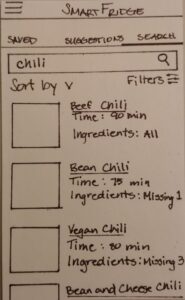 SMARTFRIDGE
SAVED SUGGESTIONS SEARCH
chili
Sort by Filters
Beef Chili
Time: 90 min
Ingredients: All
Bean Chili
Time: 75 min
Ingredients: Missing 1
Vegan Chili
Time: 80 min
Ingredients: Missing 3
Bean and Cheese Chili